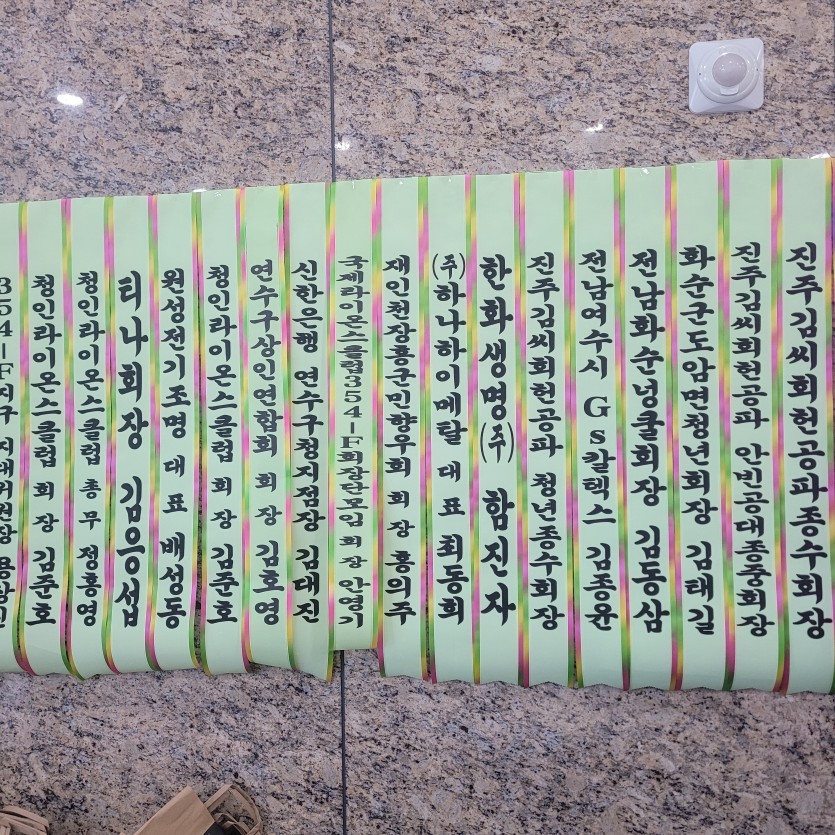 354-F지구 지대위원장
청인라이온스클럽 회장 김준호
청인라이온스클럽 총무 정홍영
티나회장 김응섭
원성전기조명 대표 배성동
청인라이온스클럽 회장 김준호
연수구상인연합회 회장 김호영
신한은행 연수구청지점장 김대진
국제라이온스클럽354-F회장단모임회장 안영기
재인천장흥군민향우회 회장 홍의주
(주)하나하이메탈 대표 최동희
한화생명(주) 함진자
진주김씨회헌공파 청년종수회장
전남여수시 Gs칼텍스 김종윤
전남화순넝쿨회장 김동삼
화순군도암면청년회장 김태길
진주김씨회헌공파 안빈공대종중회장
진주김씨회헌공파종수회장